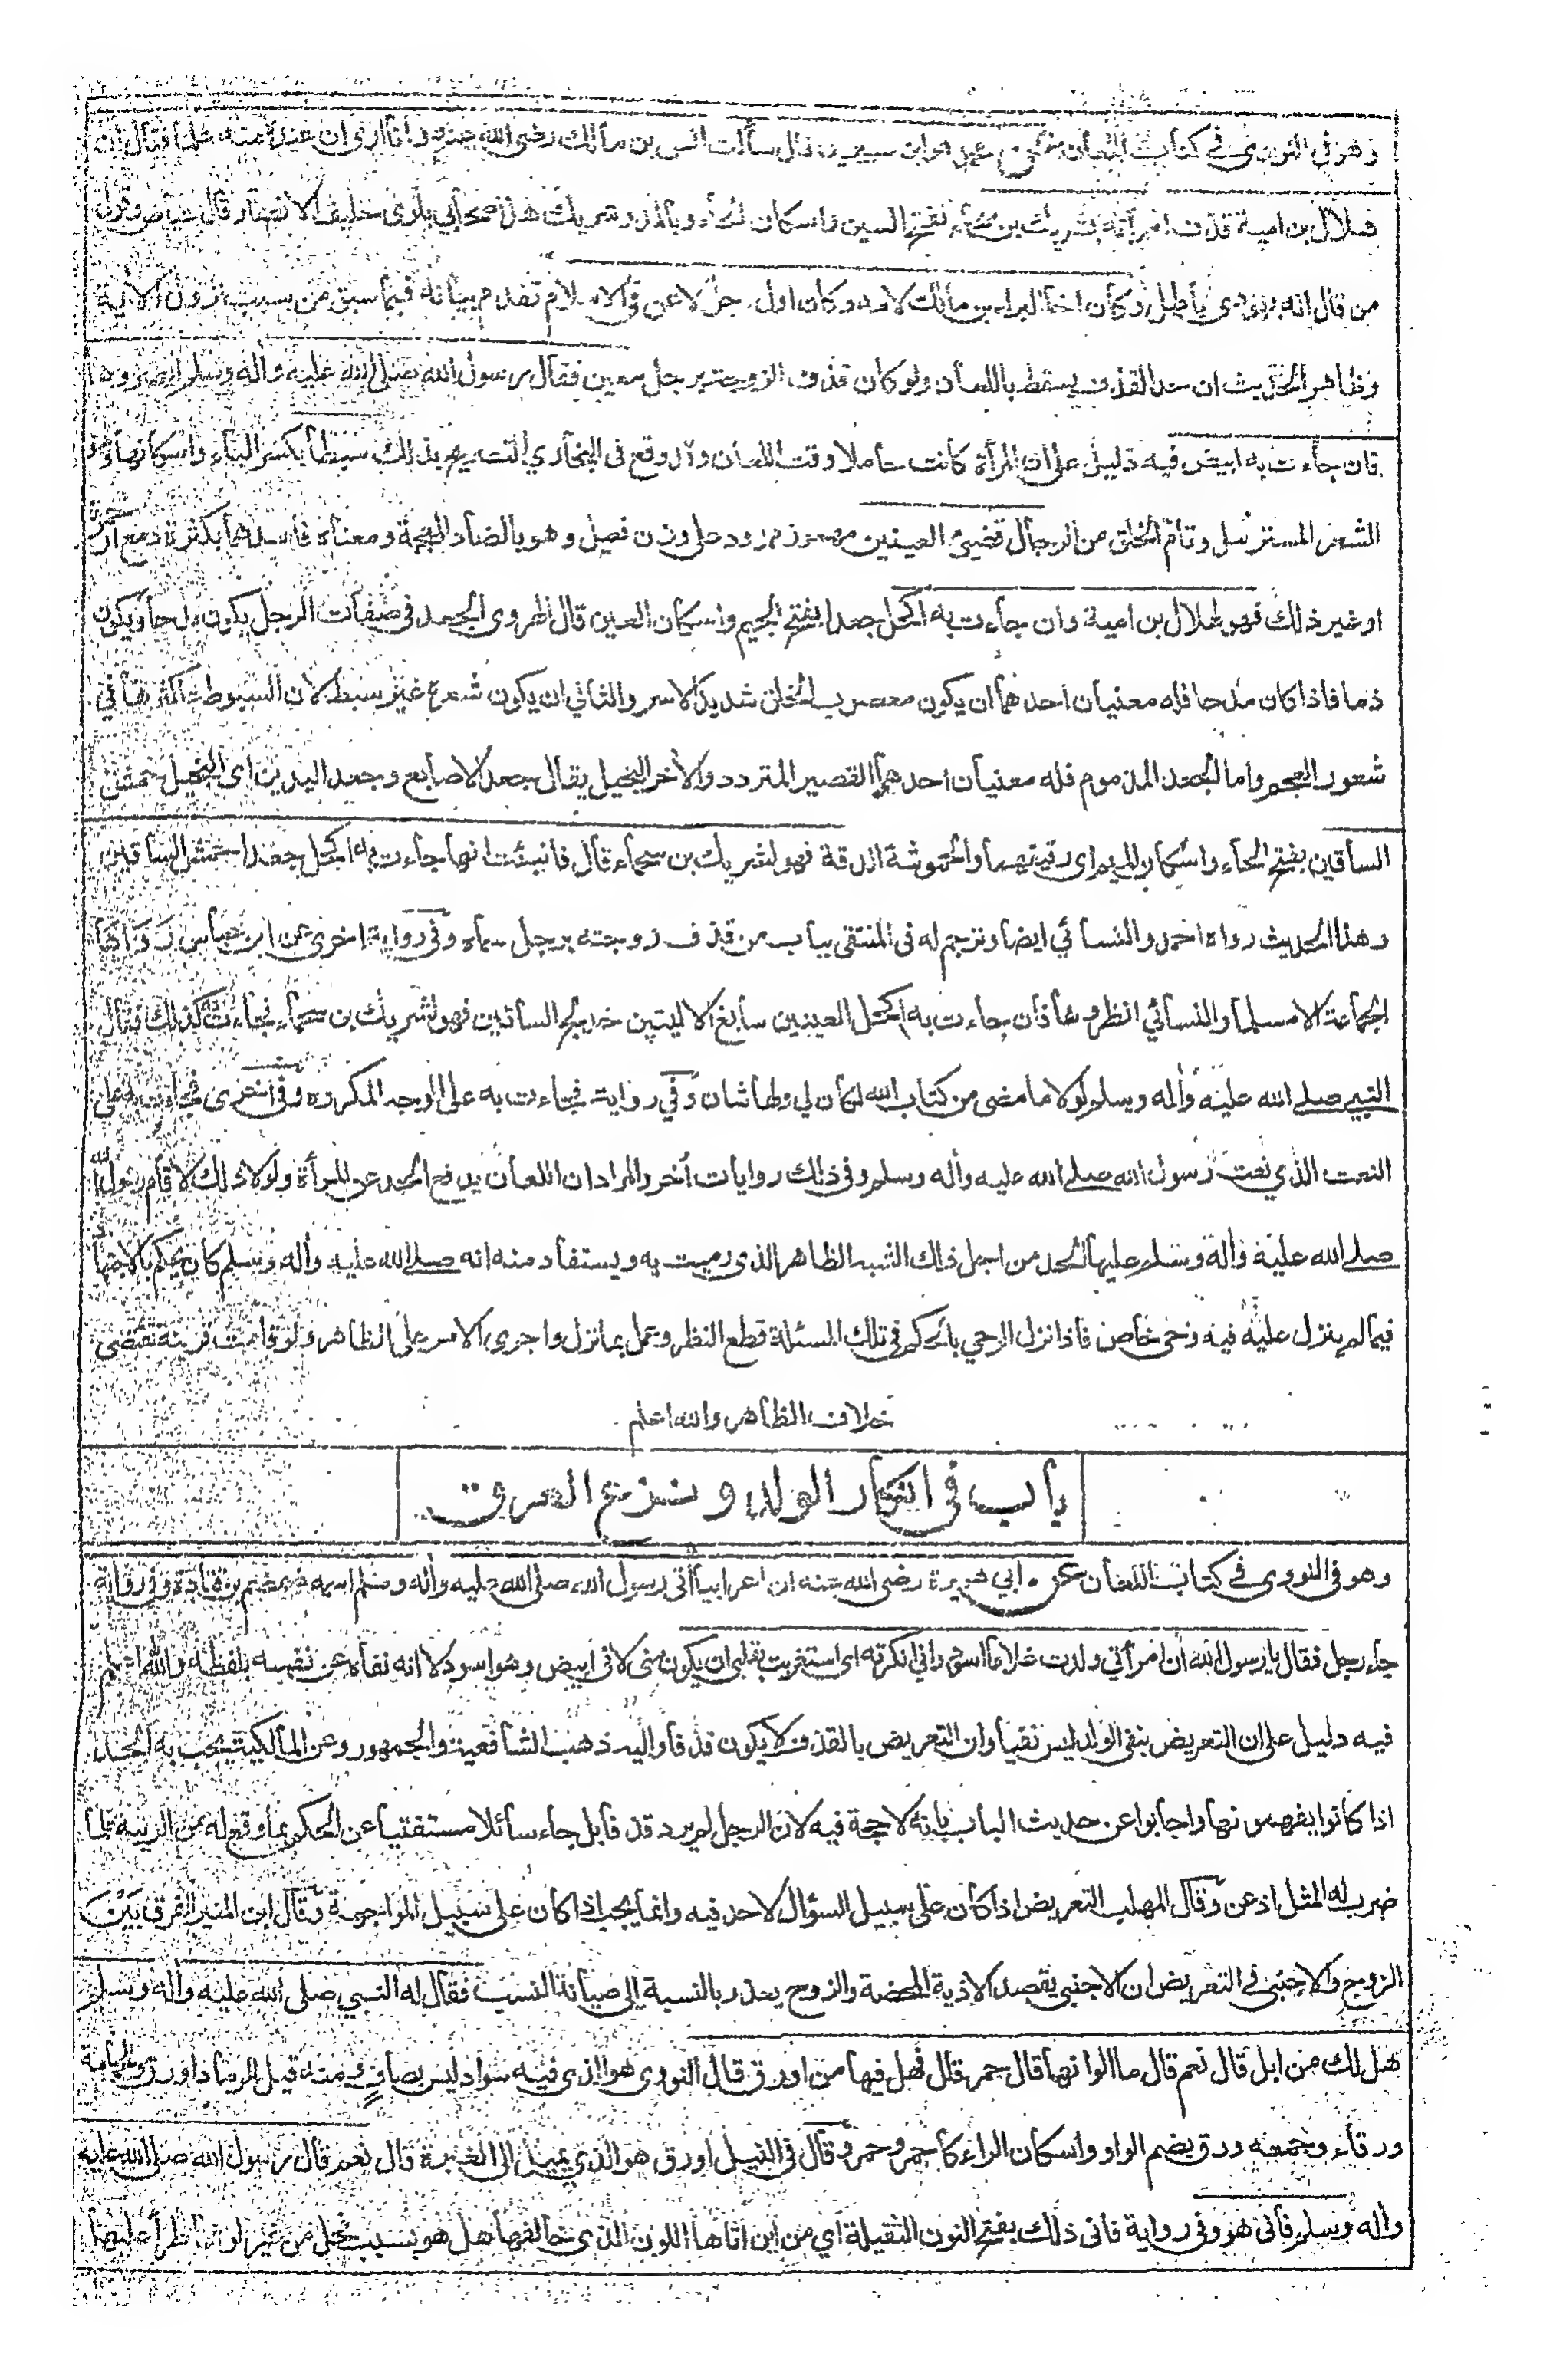 وهو في النووى في كتاب اللعان عن محمد هو ابن سيرين قال سألت انس بن مالك رضى الله عنه وانا ارى ان عنده منه علما فقال ان
هلال بن امية قذف امرأته بشريك بن سحماء بفتح السين واسكان الحاء وبالمد وشريك هذا صحابي بلوى حليف الانصار قال عياض وقول
من قال انه يهودى باطل وكان اخا البراء بن مالك لامه وكان اول رجل لاعن في الاسلام تقدم بيانه فيما سبق من سبب نزول الأية
وظاهر الحديث ان حد القذف يسقط باللعان ولو كان قذف الزوجة برجل معين فقال رسول الله صلى الله عليه وأله وسلم ابصروها
فان جاءت به ابيض فيه دليل على ان المرأة كانت حاملا وقت اللعان وقد وقع فى البخاري التصريح بذلك سبطا بكسر الباء واسكانها وهو
الشعر المسترسل وتام الخلق من الرجال قضيئ العينين مهموز ممدود على وزن فعيل وهو بالضاد المعجمة ومعناه فاسدهما بكثرة دمع او حمرة
او غير ذلك فهو لهلال بن امية وان جاءت به اكحل جعدا بفتح الجيم واسكان العين قال الهروى الجعد فى صفات الرجل يكون مدحا ويكون
ذما فاذا كان مدحا فله معنيان احدهما ان يكون معصوب الخلق شديد الاسر والثاني ان يكون شعره غير سبط لان السبوطة اكثرها في
شعور العجم واما الجعد المذموم فله معنيان احدهما القصير المتردد والأخر البخيل يقال جعد الاصابع وجعد اليدين اى البخيل حمش
الساقين بفتح الحاء واسكان الميم اى رقيقهما والحموشة الدقة فهو لشريك بن سحماء قال فانبئت انها جاءت به اكحل جعدا حمش الساقين
وهذا الحديث رواه احمد والنسائي ايضا وترجم له فى المنتقى بباب من قذف زوجته برجل سماه وفى رواية اخرى عن ابن عباس رواها
الجماعة الا مسلما والنسائي انظروها فان جاءت به اكحل العينين سابغ الاليتين خدلج الساقين فهو لشريك بن سحماء فجاءت كذلك فقال
النبي صلى الله عليه وأله وسلم لولا ما مضى من كتاب الله لكان لي ولها شان وفي رواية فجاءت به على الوجه المكروه وفى اخرى فجاءت به على
النعت الذي نعت رسول الله صلى الله عليه وأله وسلم وفى ذلك روايات أخر والمراد ان اللعان يدفع الحد عن المرأة ولولا ذلك لاقام رسول الله
صلى الله عليه وأله وسلم عليها الحد من اجل ذلك الشبه الظاهر الذى رميت به ويستفاد منه انه صلى الله عليه وأله وسلم كان يحكم بالاجتهاد
فيما لم ينزل عليه فيه وحى خاص فاذا نزل الوحي بالحكم في تلك المسئلة قطع النظر وعمل بما نزل واجرى الامر على الظاهر ولو قامت قرينة تقتضى
خلاف الظاهر والله اعلم
باب فى انكار الولد ونزع العرق
وهو فى النووى في كتاب اللعان عن ابي هريرة رضى الله عنه ان اعرابيا أتى رسول الله صلى الله عليه وأله وسلم اسمه ضمضم بن قتادة وفى رواية
جاء رجل فقال يا رسول الله ان امرأتي ولدت غلاما اسود واني انكرته اى استغربت بقلبى ان يكون منى لانى ابيض وهو اسود لا انه نفاه عن نفسه بلفظه والله اعلم
فيه دليل على ان التعريض بنفى الولد ليس نفيا وان التعريض بالقذف لا يكون قذفا واليه ذهب الشافعية والجمهور وعن المالكية يجب به الحد
اذا كانوا يفهمونها واجابوا عن حديث الباب بانه لا حجة فيه لان الرجل لم يرد قذفا بل جاء سائلا مستفتيا عن الحكم بما وقع له من الريبة فلما
ضرب له المثل اذعن وقال المهلب التعريض اذا كان على سبيل السؤال لاحد فيه وانما يجب اذا كان على سبيل المواجهة وقال ابن المنير الفرق بين
الزوج والاجنبى في التعريض ان الاجنبى يقصد الاذية المحضة والزوج يعذر بالنسبة الى صيانة النسب فقال له النبي صلى الله عليه وأله وسلم
هل لك من ابل قال نعم قال ما الوانها قال حمر قال فهل فيها من اورق قال النووى هو الذى فيه سواد ليس بصاف ومنه قيل للرماد اورق وللحمامة
ورقاء وجمعه ورق بضم الواو واسكان الراء كاحمر وحمر وقال فى النيل اورق هو الذي يميل الى الغبرة قال نعم قال رسول الله صلى الله عليه
وأله وسلم فأنى هو وفى رواية فانى ذلك بفتح النون الثقيلة أي من اين اتاها اللون الذى خالفها هل هو بسبب فحل من غير لونها طرأ عليها